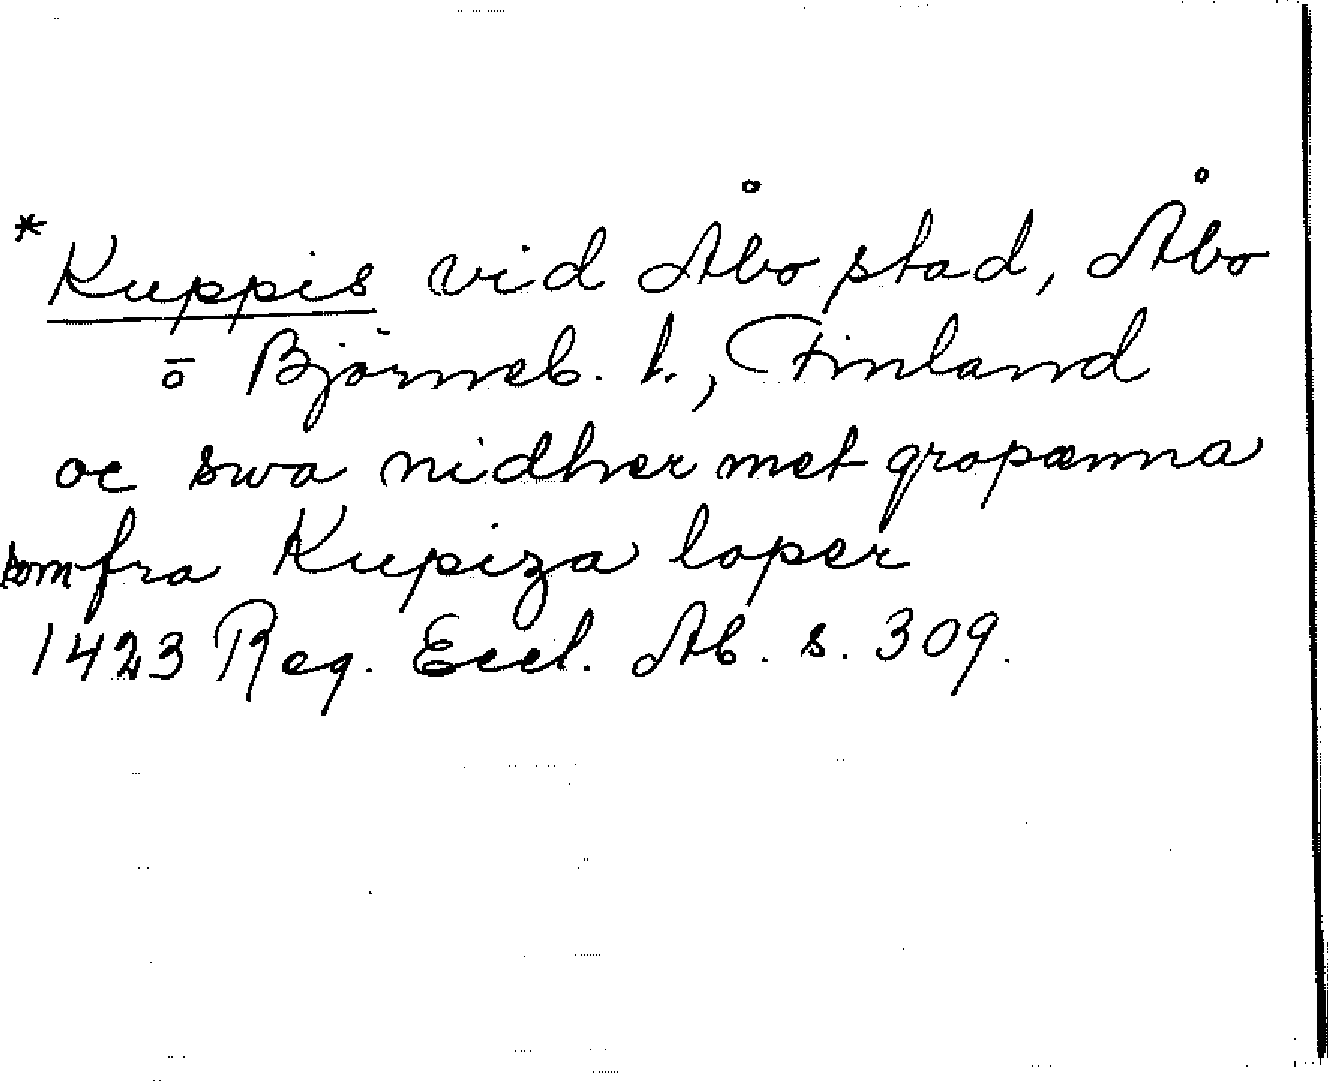 * Kuppis vid Åbo stad, Åbo
ō Björneb. l., Finland
oc swa nidher met gropænna
som fra Kupiza loper
1423 Reg. Eccl. Ab. s. 309.